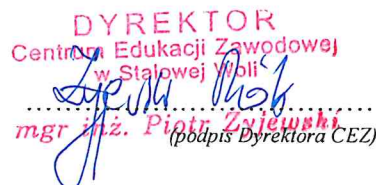 DYREKTOR
Centrum Edukacji Zawodowej
w Stalowej Woli
mgr inż. Piotr Żyjewski
(podpis Dyrektora CEZ)